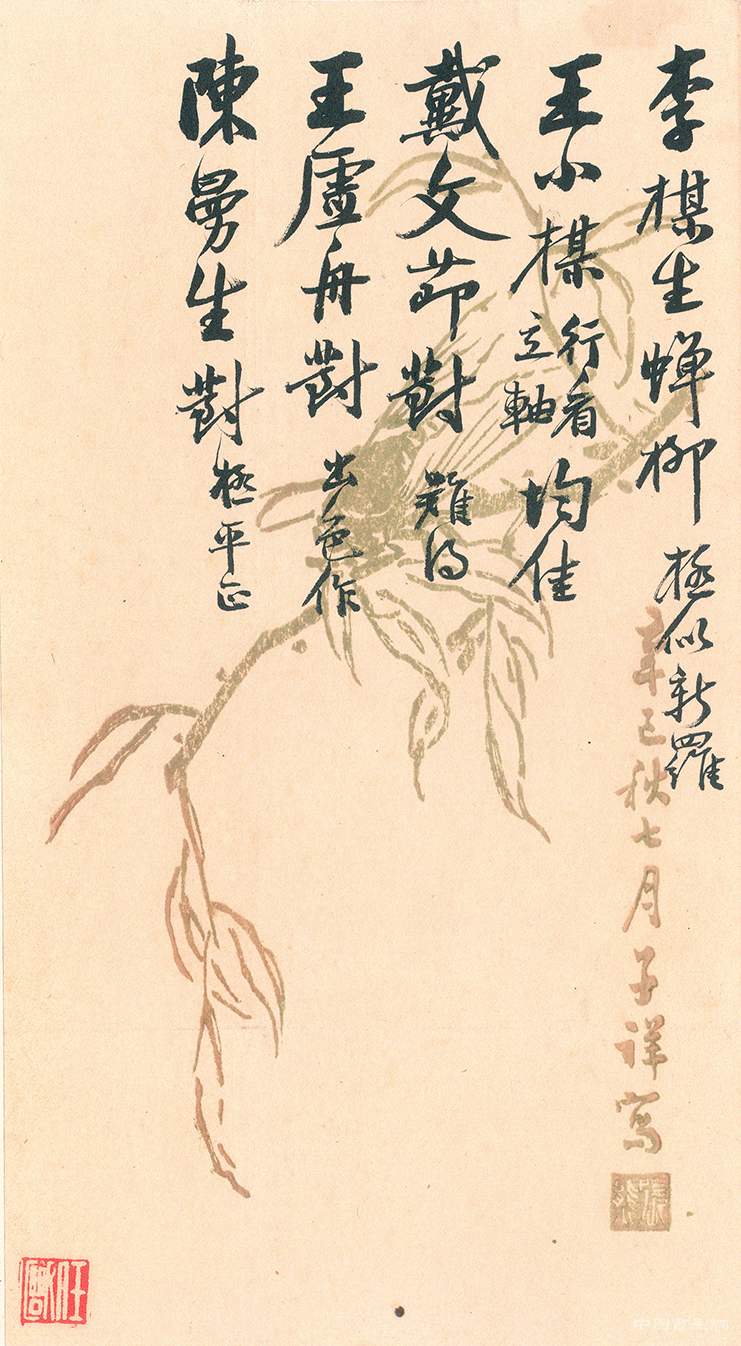 李楳生蟬柳 極似新羅
王小楳 行看立軸 均佳
戴文莭對 難得
王虛舟對 出色作
陳曼生對 極平正
辛巳秋七月子祥寫